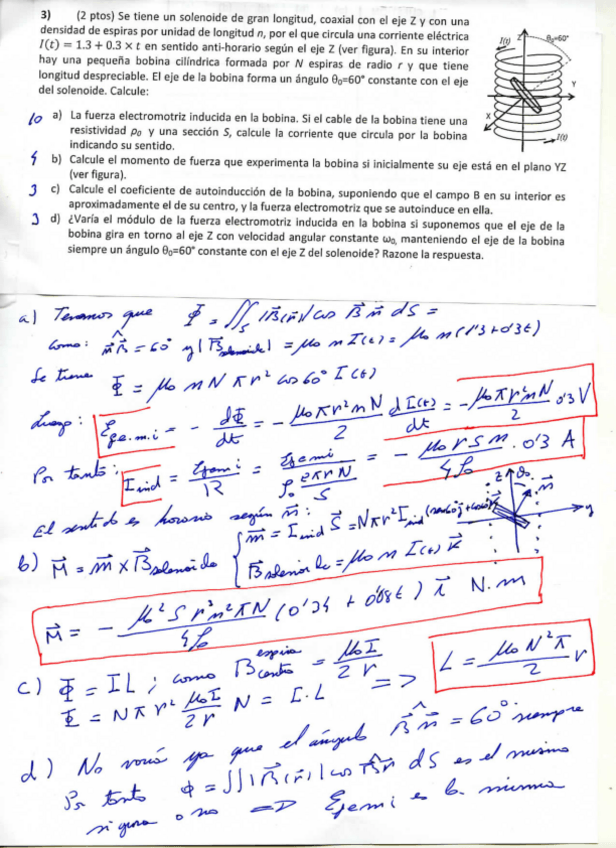 3) (2 ptos) Se tiene un solenoide de gran longitud, coaxial con el eje Z y con una
densidad de espiras por unidad de longitud n, por el que circula una corriente eléctrica
I(t) = 1.3 + 0.3 × t en sentido anti-horario según el eje Z (ver figura). En su interior
hay una pequeña bobina cilíndrica formada por N espiras de radio r y que tiene
longitud despreciable. El eje de la bobina forma un ángulo θ₀=60° constante con el eje
del solenoide. Calcule:
I(t) Z θ₀=60°
Y
X
I(t)
10 a) La fuerza electromotriz inducida en la bobina. Si el cable de la bobina tiene una
resistividad ρ₀ y una sección S, calcule la corriente que circula por la bobina
indicando su sentido.
4 b) Calcule el momento de fuerza que experimenta la bobina si inicialmente su eje está en el plano YZ
(ver figura).
3 c) Calcule el coeficiente de autoinducción de la bobina, suponiendo que el campo B en su interior es
aproximadamente el de su centro, y la fuerza electromotriz que se autoinduce en ella.
3 d) ¿Varía el módulo de la fuerza electromotriz inducida en la bobina si suponemos que el eje de la
bobina gira en torno al eje Z con velocidad angular constante ω₀, manteniendo el eje de la bobina
siempre un ángulo θ₀=60° constante con el eje Z del solenoide? Razone la respuesta.
a) Tenemos que Φ = ∬_S |B⃗(r⃗)| cos B⃗n⃗ dS =
como: n⃗B⃗ = 60° y |B⃗solenoide| = μ₀ n I(t) = μ₀ n (1'3+0'3t)
Se tiene Φ = μ₀ n N π r² cos 60° I(t)
Luego: ℰf.e.m.i = - dΦ/dt = - μ₀πr²nN/2 dI(t)/dt = - μ₀πr²nN/2 0'3 V
Por tanto: I ind = ℰfemi/R = ℰfemi/(ρ₀ 2πrN/S) = - μ₀ r S n/4ρ₀ · 0'3 A
El sentido es horario según n⃗:
z θ₀ n⃗ y
b) M⃗ = m⃗ × B⃗solenoide { m⃗ = I ind S⃗ = Nπr² I ind (sen60 j⃗ + cos60 k⃗)
B⃗solenoide = μ₀ n I(t) k⃗
M⃗ = - μ₀² S r³ n² π N/4ρ₀ (0'34 + 0'08t) i⃗ N·m
c) Φ = IL ; como B espira centro = μ₀I/2r => L = μ₀N²π/2 r
Φ = Nπr² μ₀I/2r N = I·L
d) No varía ya que el ángulo B⃗n⃗ = 60° siempre
Por tanto Φ = ∬|B⃗(r⃗)| cos B⃗n⃗ dS es el mismo
si gira o no => ℰfemi es la misma